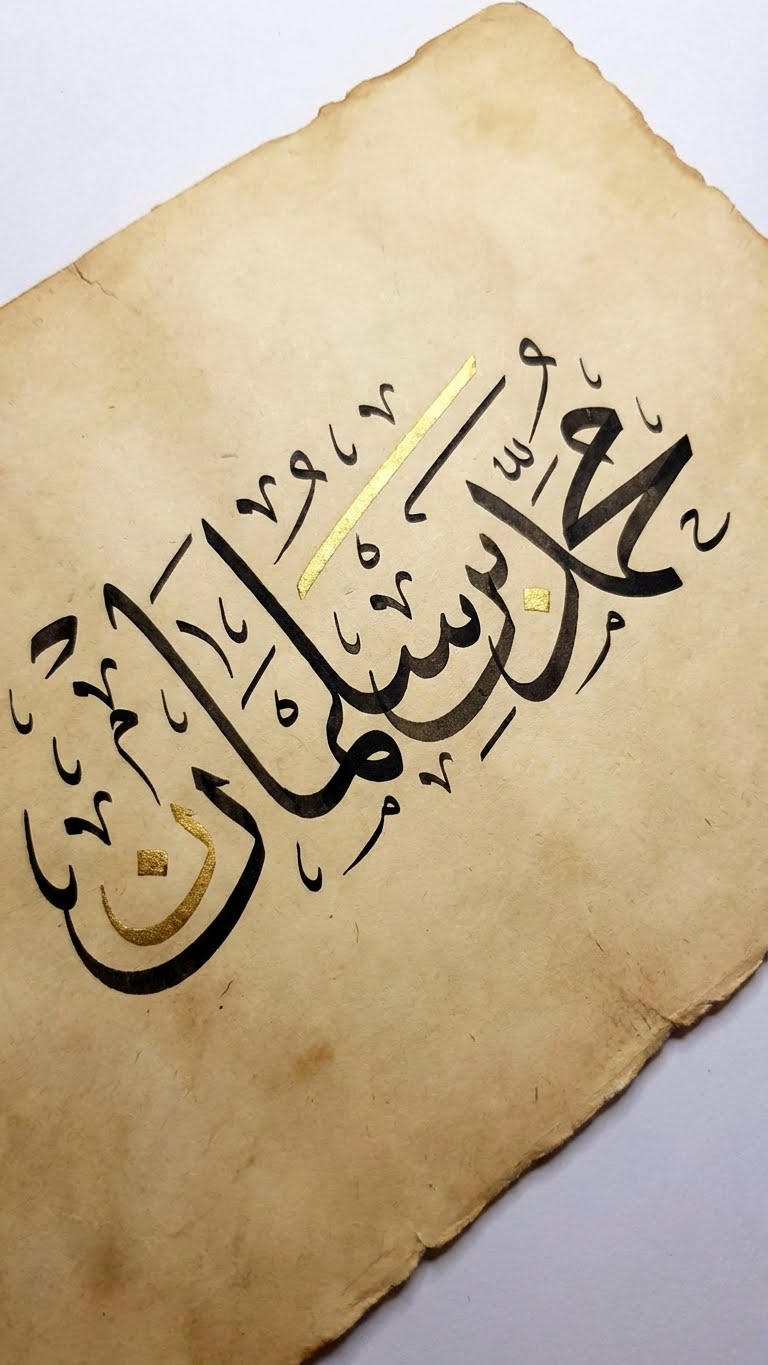 محمد بن سلمان